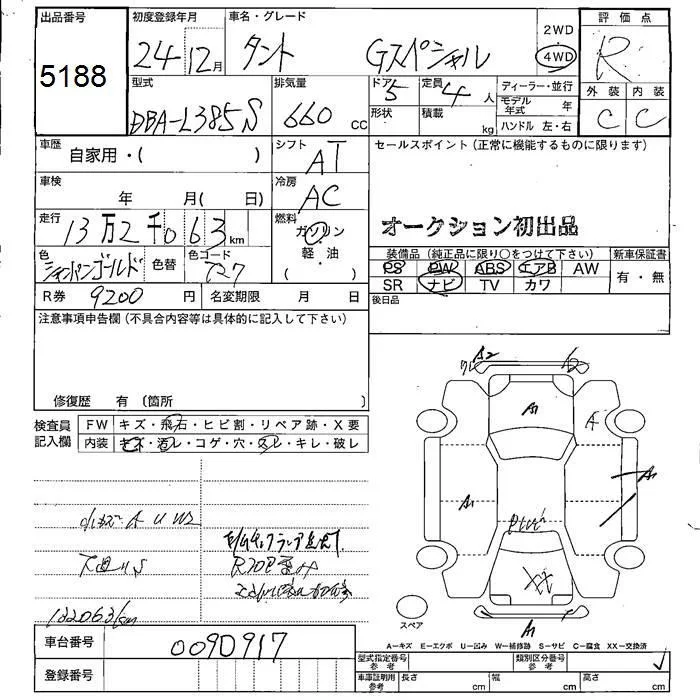 出品番号
5188
初度登録年月
24 12月
車名・グレード
タント Gスペシャル
2WD
4WD
評価点
R
型式
DBA-L385S
排気量
660 cc
ドア
5
形状
定員
4 人
積載
kg
ディーラー・並行
モデル年式 年
ハンドル 左・右
外装
C
内装
C
車歴
自家用・( )
シフト
AT
セールスポイント(正常に機能するものに限ります)
オークション初出品
車検
年 月( 日)
冷房
AC
走行
13万2千063km
燃料
ガソリン
軽・油
( )
色
シャンパンゴールド
色替
色コード
T27
装備品(純正品に限り○をつけて下さい)
PS PW ABS エアB AW
SR ナビ TV カワ
新車保証書
有・無
R券 9200円
名変期限 月 日
後日品
注意事項申告欄(不具合内容等は具体的に記入して下さい)
修復歴 有(箇所 )
検査員記入欄
FW キズ・飛石・ヒビ割・リペア跡・X要
内装 キズ・汚レ・コゲ・穴・スレ・キレ・破レ
A2
A1
A
A1
A1
XX
A1
小キズ A U W2
下廻りS
132063km
スペア
A－キズ E－エクボ U－凹み W－補修跡 S－サビ C－腐食 XX－交換済
車台番号
0090917
登録番号
型式指定番号 参考
類別区分番号 参考
車庫証明用 参考
長さ cm
幅 cm
高さ cm